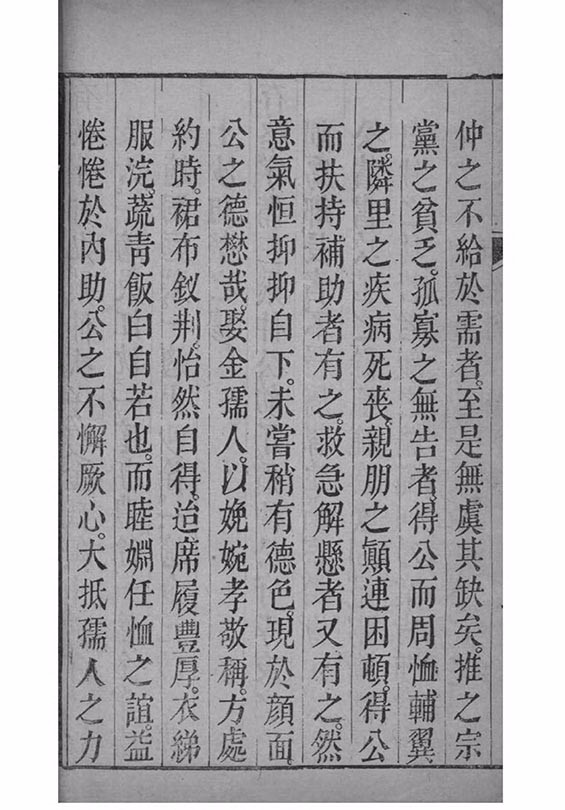 仲之不給於需者。至是無虞其缺矣。推之宗
黨之貧乏。孤寡之無告者。得公而周恤輔翼
之。隣里之疾病死喪。親朋之顚連困頓。得公
而扶持補助者有之。救急解懸者又有之。然
意氣恒抑抑自下。未嘗稍有德色。現於顔面。
公之德懋哉。娶金孺人。以娩婉孝敬稱。方處
約時。裙布釵荆。怡然自得。迨席履豐厚。衣綈
服浣。蔬靑飯白自若也。而睦婣任恤之誼。益
惓惓於內助。公之不懈厥心。大抵孺人之力